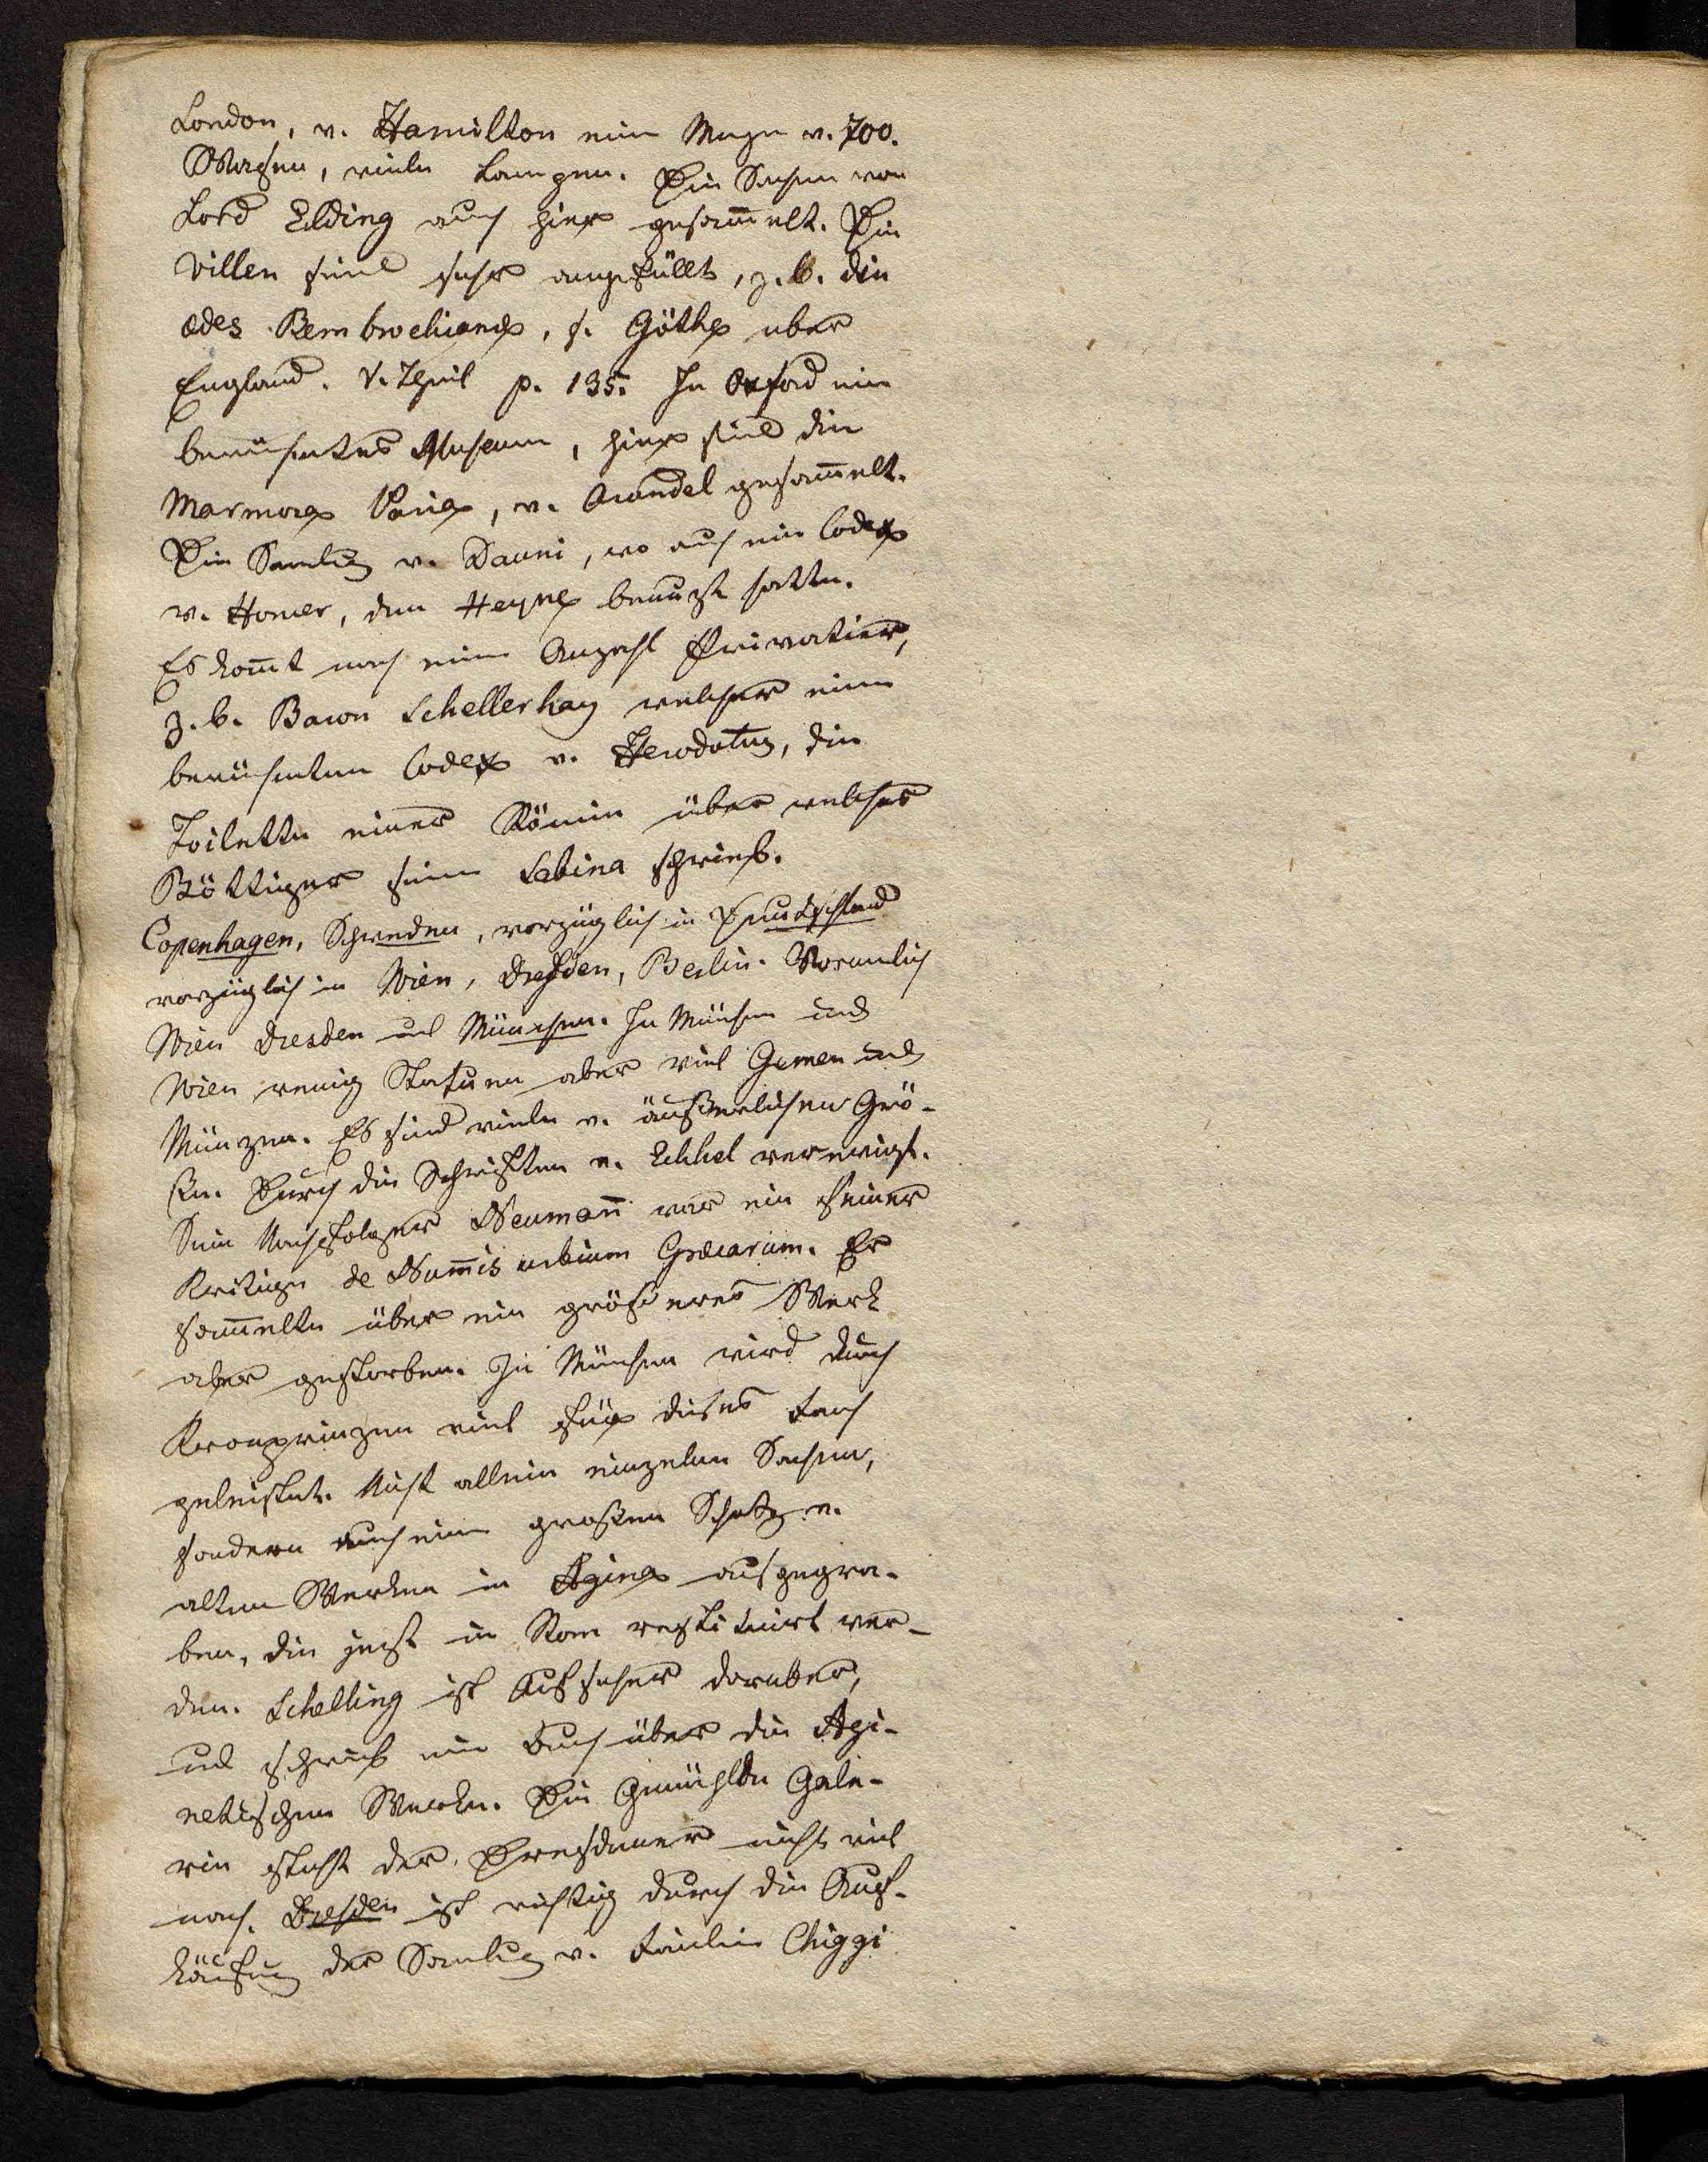 London, v. Hamilton eine Menge v. 700.
Vasen, viele Lampen. Die Sachen von
Lord Elding auch hier gesam̄elt. Die
Villen sind sehr angefüllt, z. b. die
ædes Pembrockiana, s. Göthe uber
England. V. Theil p. 135. In Oxford ein
berühmtes Museum, hier sind die
Marmora Paria, v. Arundel gesam̄elt.
Die Samlug v. Dauni, wo auch ein Codex
v. Homer, den Heyne benuzt hatte.
Es kom̄t noch eine Anzahl Privatier,
z. b. Baron Schellerhag welcher einen
berühmten Codex v. Herodotus, die
Toilette einer Römin über welches
Böttiger seine Sabina schrieb.
Copenhagen, Schweden, vorzüglich in Deutschland
vorzüglich in Wien, Dresden, Berlin. Vornemlich
Wien Dresden und München. In München und
Wien wenig Statuen aber viel Gemen und
Münzen. Es sind viele v. äußerlichen Grö-
ßen. Durch die Schriften v. Eckhel verewigt.
Sein Nachfolger Neuman̄ war ein feiner
Kritiger de Num̄is urbium Græcarum. Er
sam̄elte über ein größeres Werk
aber gestorben. In München wird durch
Kronprinzen viel für dieses Fach
geleistet. Nicht allein einzelne Sachen,
sondern auch einen großen Schatz v.
alten Werken in Ägina ausgegra-
ben, die jezt in Rom restituirt wer-
den. Schelling ist Aufseher daruber,
und schrieb ein Buch über die Ägi-
netischen Werke. Die Gemählde Gale-
rie steht der Dresdener nicht viel
nach. Dresden ist wichtig durch die Auf-
käufung der Samlug v. Familie Chiggi